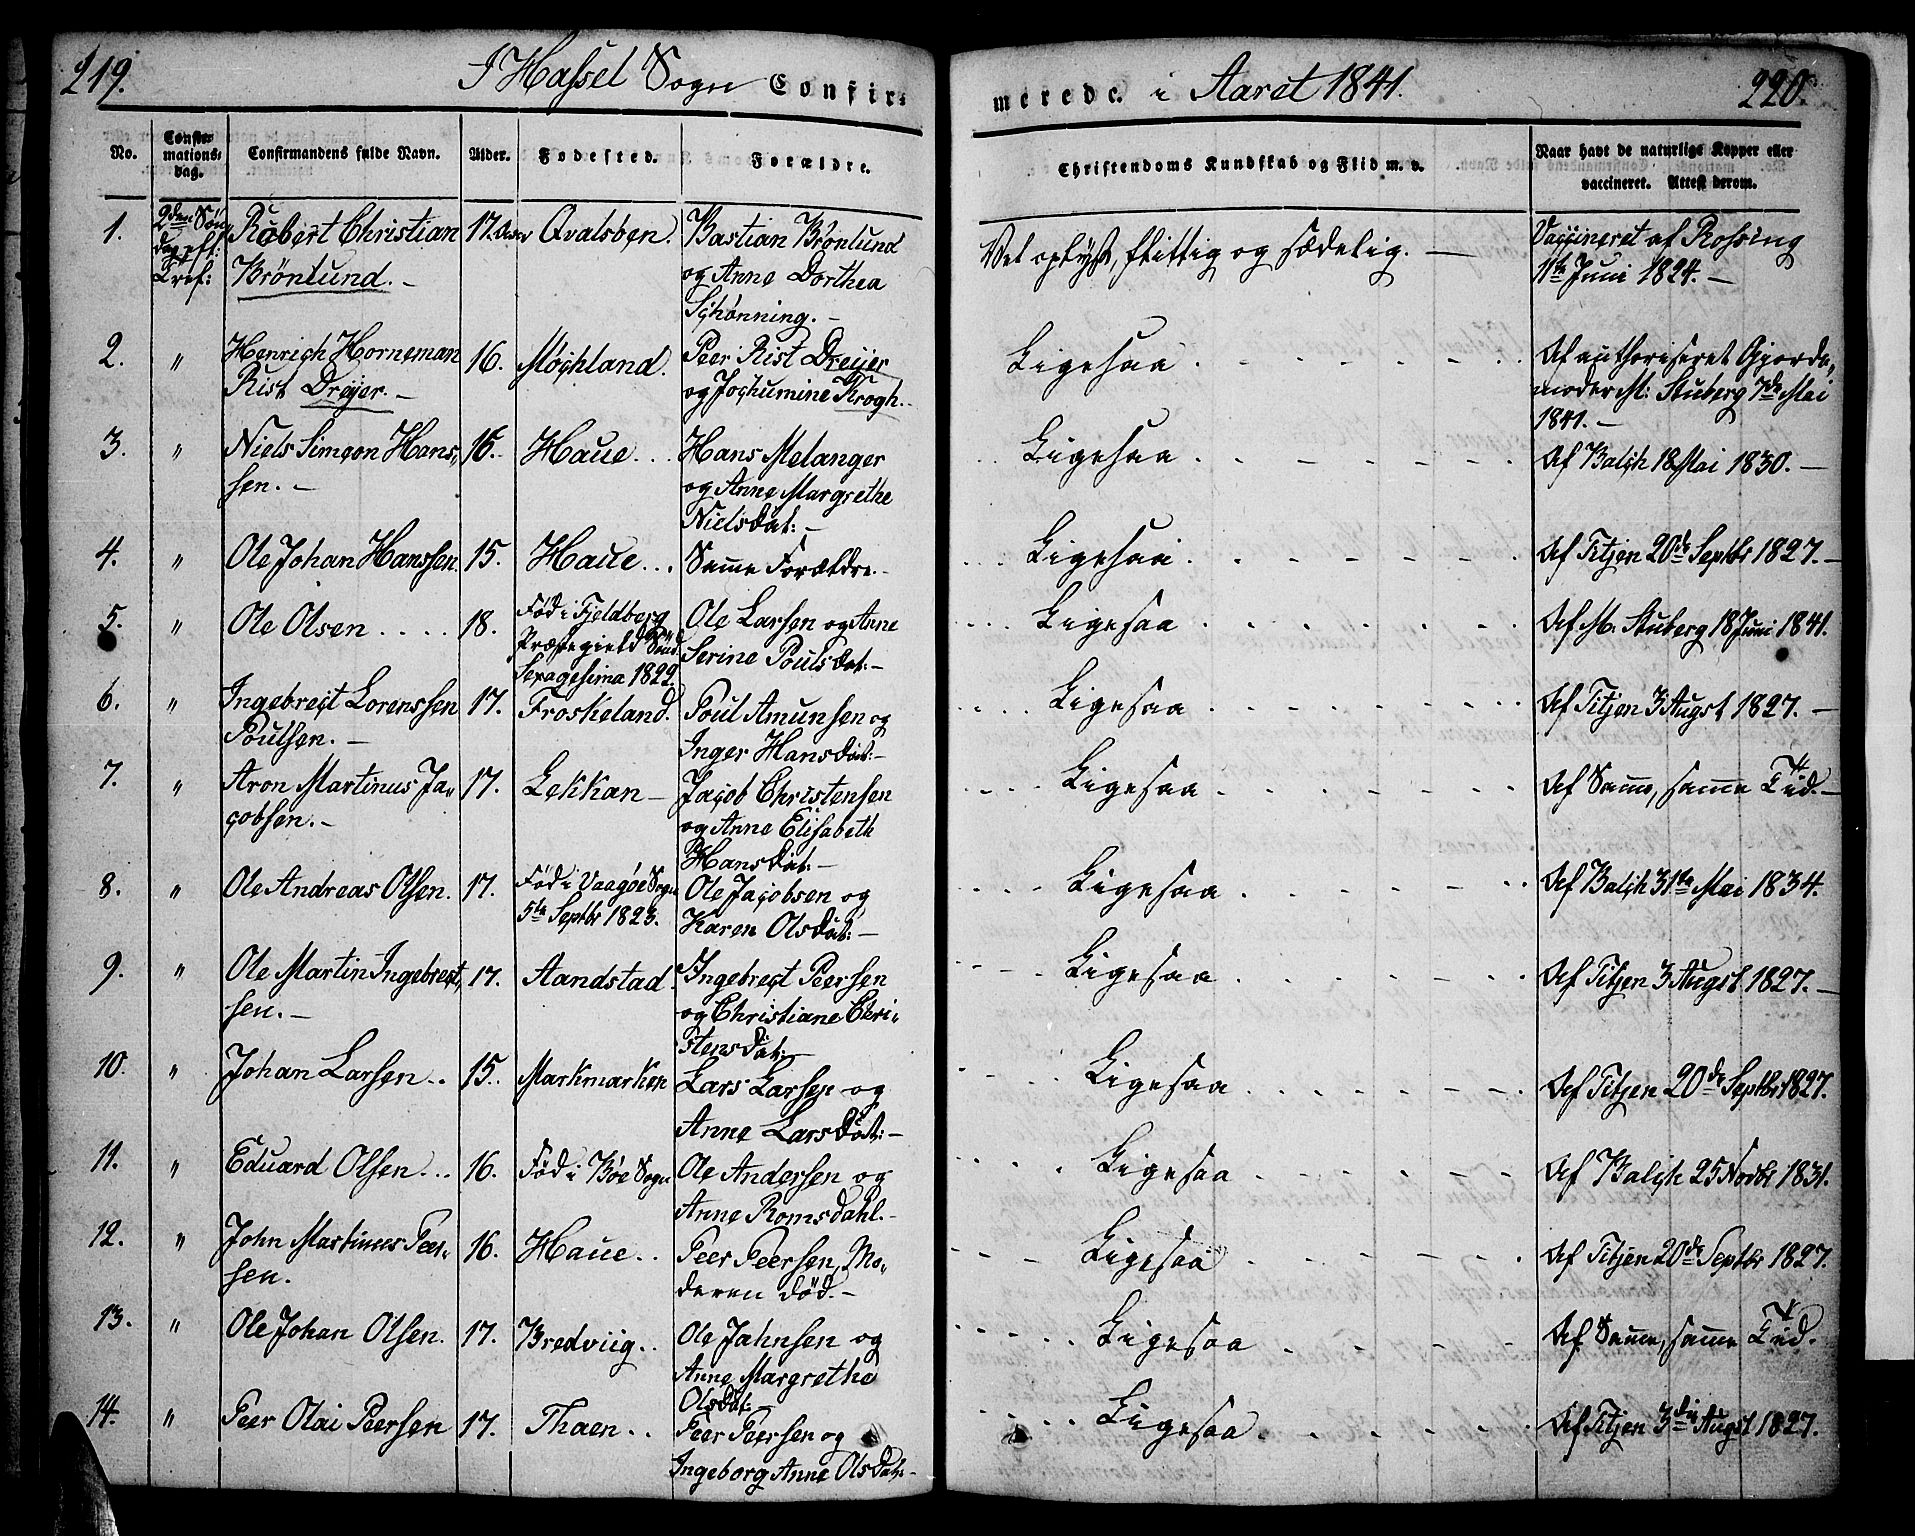 219.
I Hassel Sogn Confir-
merede. i Aaret 1841.
220.
No.
Confir-
mations-
dag.
Confirmandens fulde Navn.
Alder.
Fødested.
Forældre.
Christendoms Kundskab og Flid m. v.
Naar havt de naturlige Kopper eller
vaccineret. Attest derom.
1.
2den Søn-
dag eft:
Tref:
Robert Christian
Brönlund. -
17. Aar
Qvalsben.
Bastian Brönlund
og Anne Dorthea
Schönning. -
Vel oplyst, flittig og sædelig. -
Vaccineret af Rossing
11te Juni 1824. -
2.
"
Henrich Horneman
Rist Dreyer. -
16.
Møchland.
Peer Rist Dreyer
og Jochumine Krogh. -
Ligesaa
Af authoriseret Gjorde-
moder M: Stuberg 7de Mai
1841. -
3.
"
Niels Simeon Hans-
sen. -
16.
Haue . .
Hans Melanger
og Anne Margrethe
Nielsdat: -
Ligesaa
Af Balch 18 Mai 1830. -
4.
"
Ole Johan Hanssen.
15.
Haue . . .
Samme Forældre. -
Ligesaa
Af Titjen 20de Septbr 1827. -
5.
"
Ole Olsen . . . .
18.
Fød i Fjeldberg
Præstegield Sönd:
Sexagesima 1822.
Ole Larsen og Anne
Serine Poulsdat: -
Ligesaa
Af M. Stuberg 18 Juni 1841.
6.
"
Ingebrect Lorenssen
Poulsen. -
17.
Froskeland.
Poul Amunsen og
Inger Hansdat: -
Ligesaa
Af Titjen 3 Augst 1827. -
7.
"
Aron Martinus Ja-
cobsen. -
17.
Lekkan -
Jacob Christensen
og Anne Elisabeth
Hansdat: -
Ligesaa
Af Samme, samme Tid. -
8.
"
Ole Andreas Olsen.
17.
Fød i Vaagøe Sogn
5te Septbr 1823.
Ole Jacobsen og
Karen Olsdat: -
Ligesaa
Af Balch 31te Mai 1834.
9.
"
Ole Martin Ingebrect-
sen. -
17.
Aandstad.
Ingebrect Peersen
og Christiane Chri-
stensdat: -
Ligesaa
Af Titjen 3 Augst 1827. -
10.
"
Johan Larsen . .
15.
Markmarken
Lars Larsen og
Anne Larsdat: -
Ligesaa
Af Titjen 20de Septbr 1827.
11.
"
Eduard Olsen . . .
16.
Fød i Bøe Sogn
Ole Andersen og
Anne Romsdahl. -
Ligesaa
Af Balch 25 Novbr 1831.
12.
"
John Martinus Peer-
sen.
16.
Haue . .
Peer Peersen, Mo-
deren død. -
Ligesaa
Af Titjen 20de Septbr 1827.
13.
"
Ole Johan Olsen.
17.
Bredviig . .
Ole Jahnsen og
Anne Margrethe
Olsdat: -
Ligesaa
Af Samme, samme Tid.
14.
"
Peer Olai Peersen
17.
Thaen . .
Peer Peersen og
Ingeborg Anne Olsdat: -
Ligesaa
Af Titjen 3die Augst 1827.